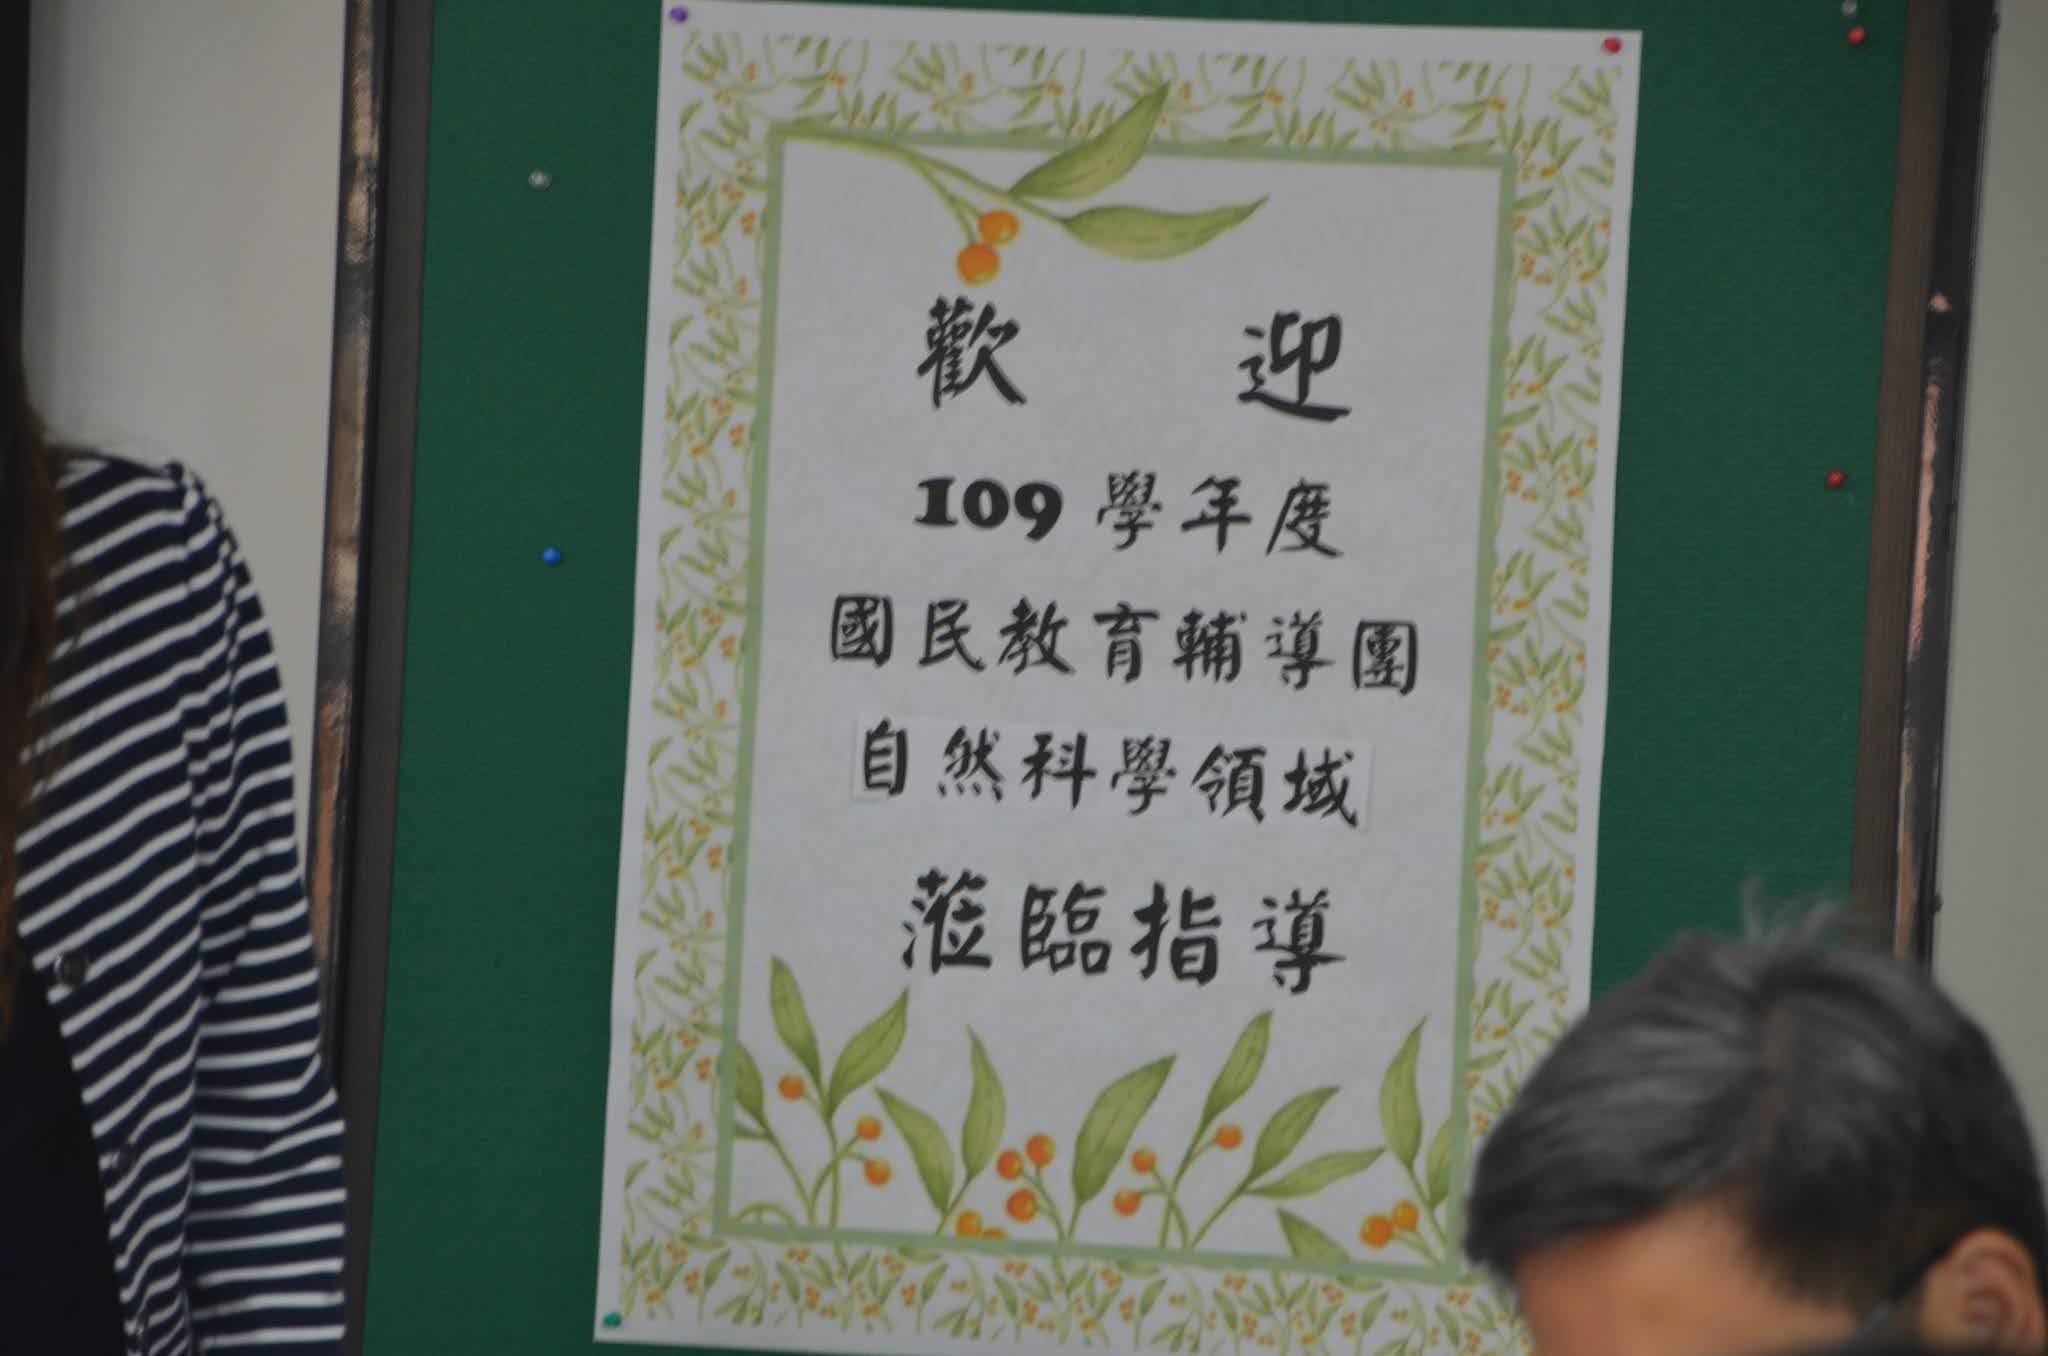 歡 迎
109 學年度
國民教育輔導團
自然科學領域
蒞臨指導